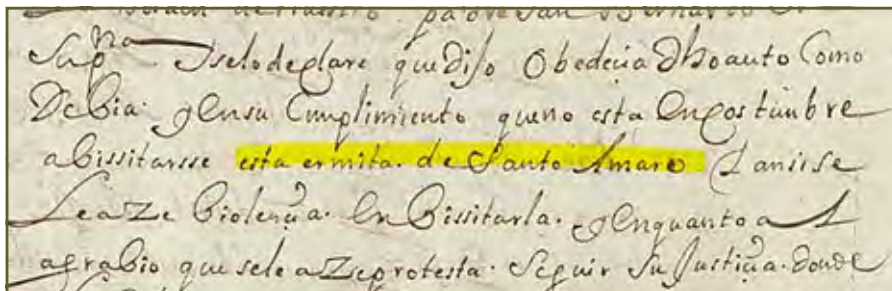 de nuestro padre san Bernardo
Supna Iselodeclare que dijo Obedecia dho auto Como
Debia. y Ensu Cumplimiento queno esta En Costunbre
abissitarsse esta ermita. de Santo Amaro
Leaze biolençia. En bissitarla. y Enquanto al
agrabio que sele aze protesta. Seguir Su Justiçia. donde